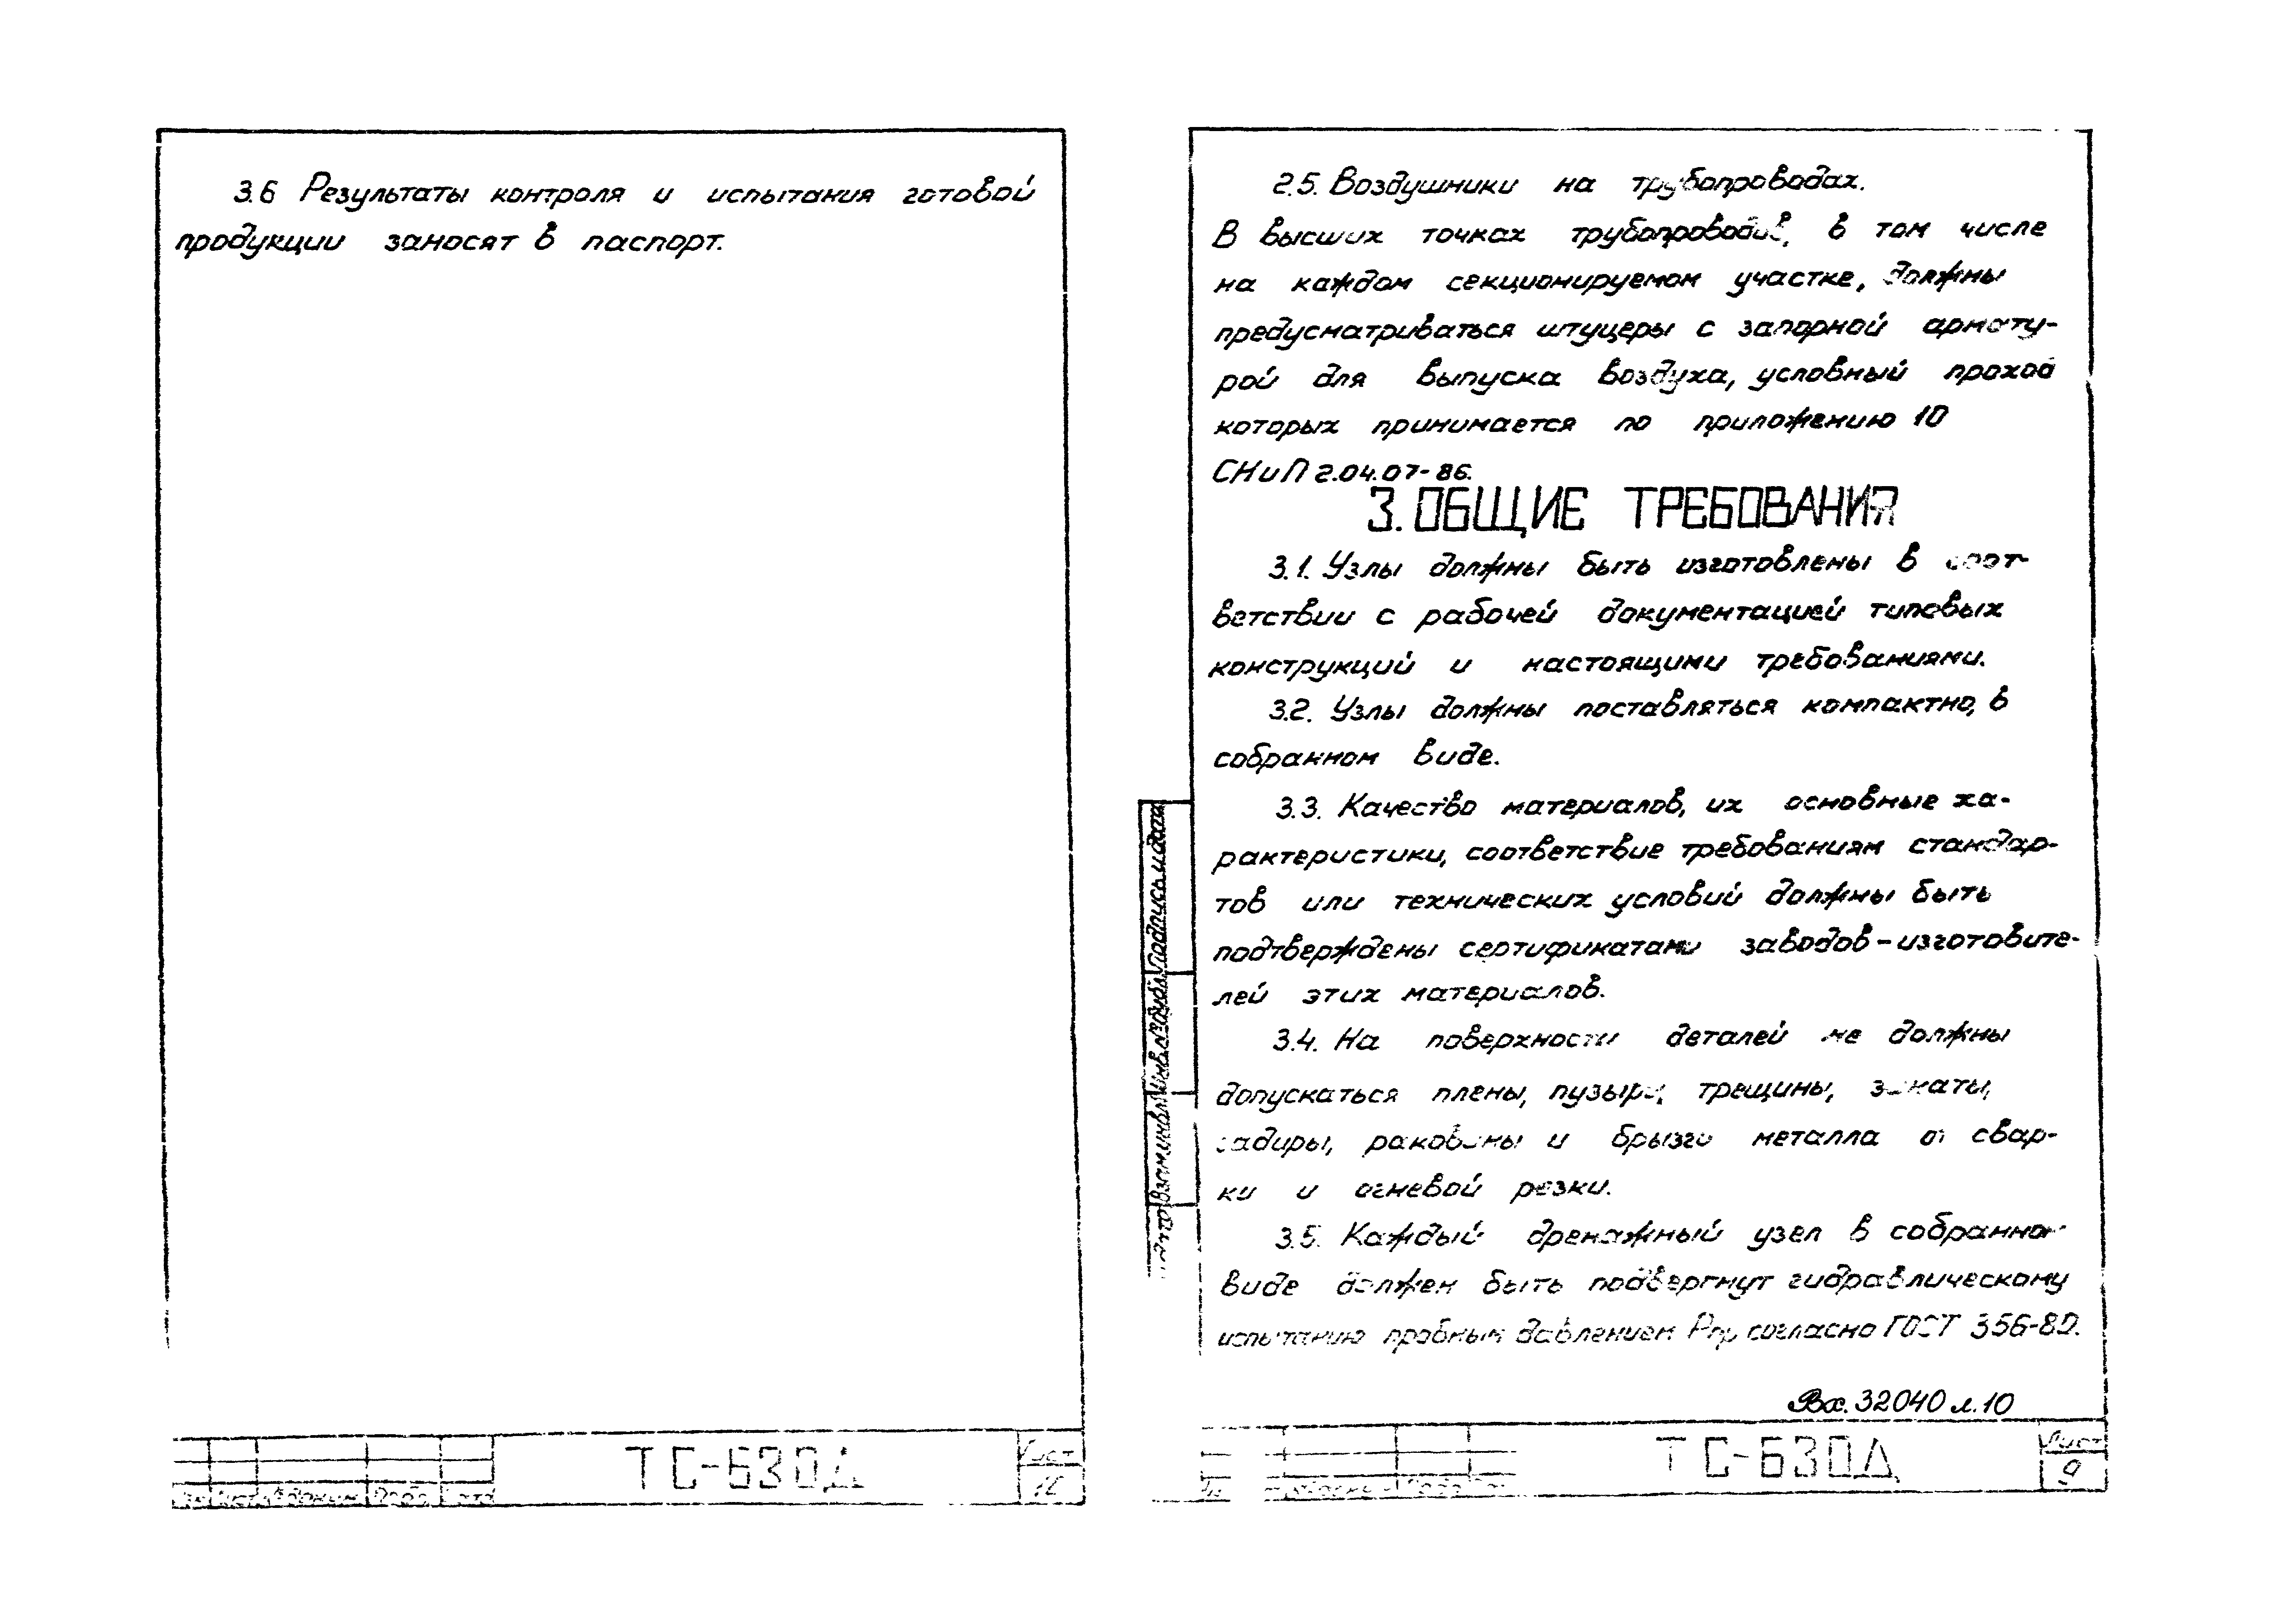 3.6 Результаты контроля и испытания готовой
продукции заносят в паспорт.
ТС-630Д
Лист
2.5. Воздушники на трубопроводах.
В высших точках трубопроводов, в том числе
на каждом секционируемом участке, должны
предусматриваться штуцеры с запорной армату-
рой для выпуска воздуха, условный проход
которых принимается по приложению 10
СНиП 2.04.07-86.
3. ОБЩИЕ ТРЕБОВАНИЯ
3.1. Узлы должны быть изготовлены в соот-
ветствии с рабочей документацией типовых
конструкций и настоящими требованиями.
3.2. Узлы должны поставляться компактно, в
собранном виде.
3.3. Качество материалов, их основные ха-
рактеристики, соответствие требованиям стандар-
тов или технических условий должны быть
подтверждены сертификатами заводов-изготовите-
лей этих материалов.
3.4. На поверхности деталей не должны
допускаться плены, пузыри, трещины, закаты,
задиры, раковины и брызги металла от свар-
ки и огневой резки.
3.5. Каждый дренажный узел в собранном
виде должен быть подвергнут гидравлическому
испытанию пробным давлением Рпр, согласно ГОСТ 356-80.
Вх. 32040 л.10
Подпись и дата
Инв.№ дубл.
Взам.инв.№
ТС-630Д
Лист
9